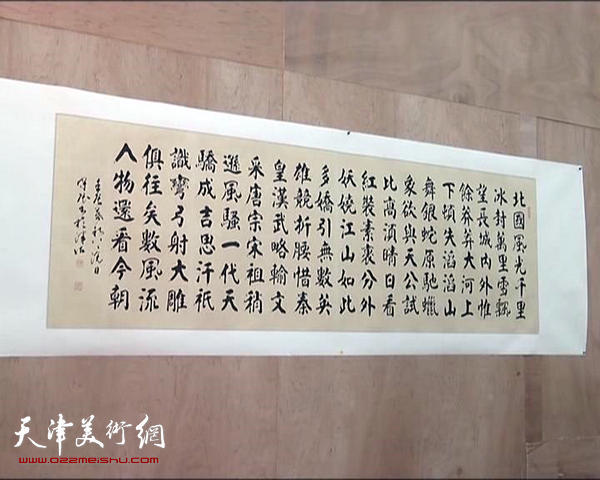 北國風光千里
冰封萬里雪飄
望長城内外惟
餘莽莽大河上
下頓失滔滔山
舞銀蛇原馳蠟
象欲與天公試
比高須晴日看
紅裝素裹分外
妖嬈江山如此
多嬌引無數英
雄競折腰惜秦
皇漢武略輸文
采唐宗宋祖稍
遜風騷一代天
驕成吉思汗祇
識彎弓射大雕
俱往矣數風流
人物還看今朝
天津美術網
www.022meishu.com